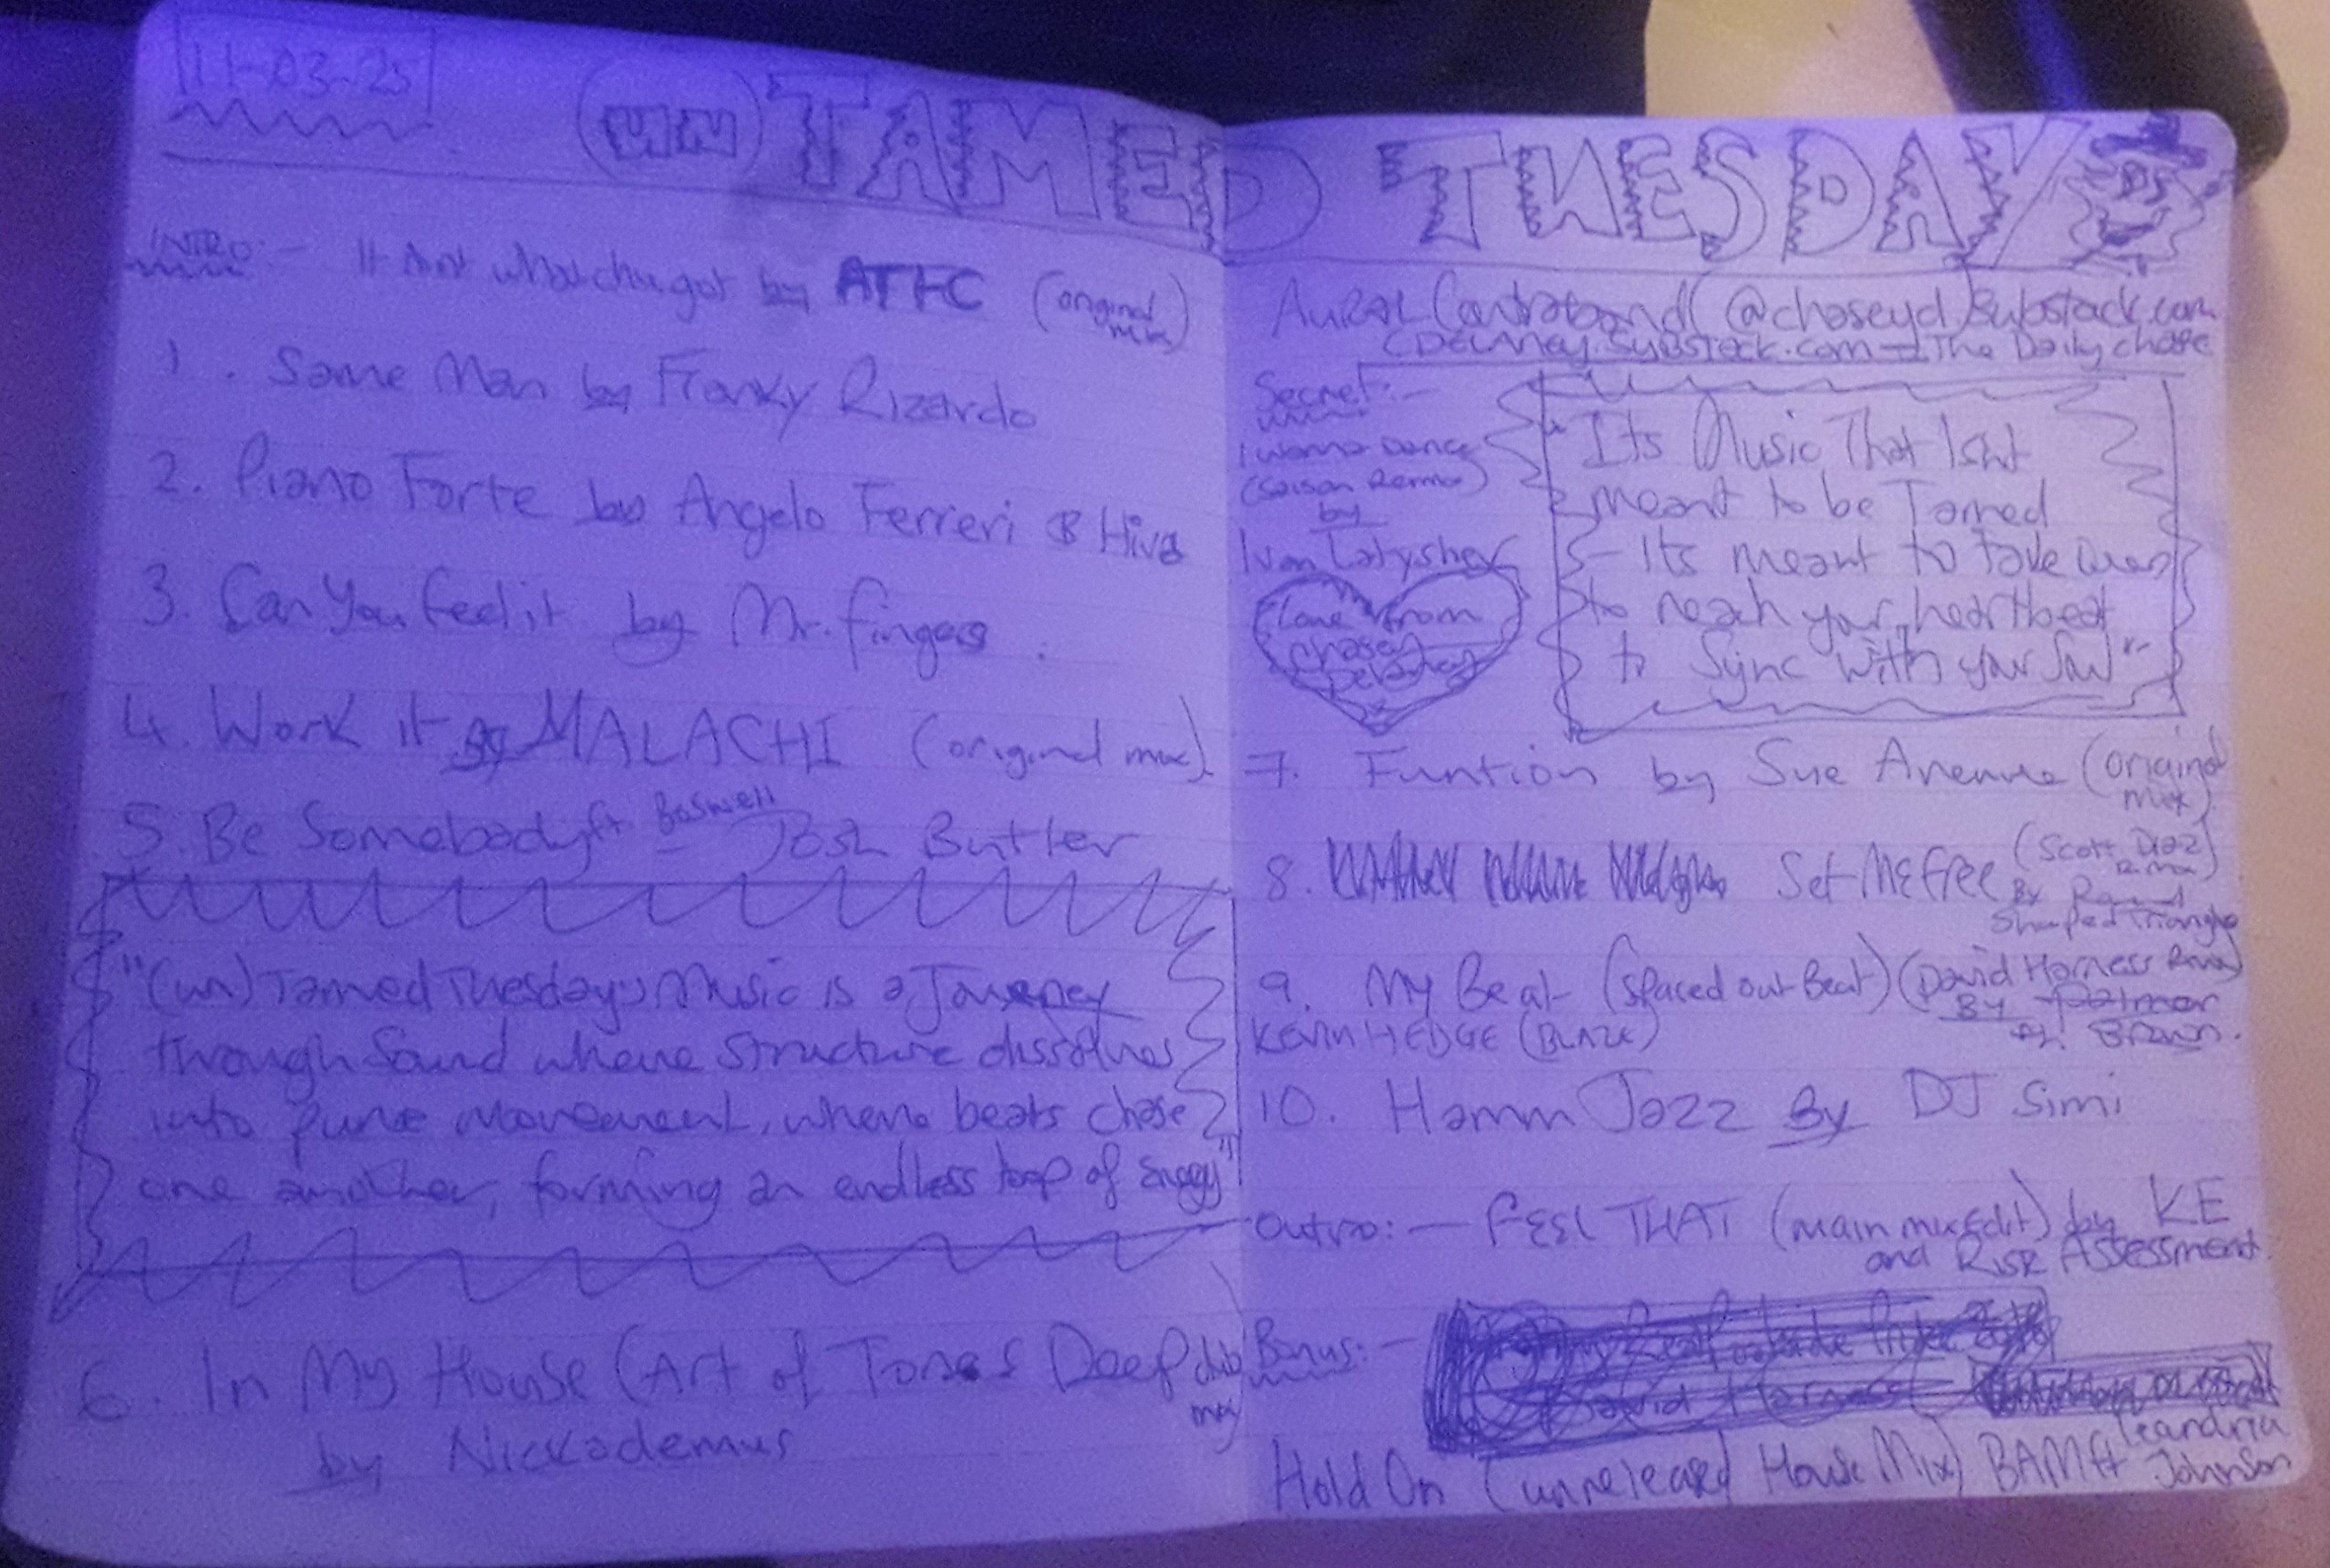 11-03-25
(UN) TAMED TUESDAY
INTRO:- It Aint whatchugot by ATFC (original mix)
1. Same Man by Franky Rizardo
2. Piano Forte by Angelo Ferreri & Hiva
3. Can You Feel it by Mr. fingers.
4. Work it By MALACHI (original mix)
5. Be Somebody ft Boswell Josh Butler
"(un)Tamed Tuesdays Music is a Journey
through Sound where structure dissolves
into pure movement, where beats chase
one another, forming an endless loop of energy"
6. In My House (Art of Tones Deep dub mix)
by Nickodemus
AURAL Contraband (@chaseyd) Substack.com
CDELANEY.SUBSTACK.com - The Daily chase
Secret:-
I Wanna Dance
(Saison Remix)
by
Ivan Latyshev
Love from
chasey
Delaney
Its Music That Isnt
meant to be Tamed
- Its meant to take over
to reach your heartbeat
to Sync with your Soul"
7. Funtion by Sue Avenue (original mix)
8. Set Me Free (Scott Diaz Remix)
By Round
Shaped Triangle
9. My Beat (spaced out Beat) (David Harness Remix)
KEVIN HEDGE (BLAZE) By Brown.
10. Hamm Jazz By DJ Simi
Outro:- FEEL THAT (main mix Edit) by KE
and RISK ASSESSMENT
Bonus:-
Hold On (unreleased House Mix) BAM ft Leandria Johnson